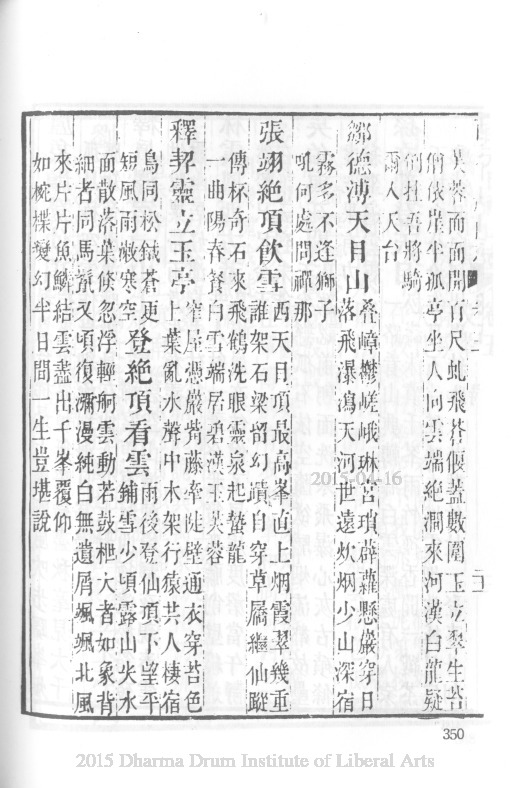 芙蓉面面開百尺虬飛蒼偃蓋數圍玉立翠生苔
俯依崖半孤亭坐人向雲端絕澗來河漢白龍疑
倒挂吾將騎
爾入天台
鄒德溥天目山 疊嶂鬱嵯峨琳宮瑣薜蘿懸巖穿日
落飛瀑瀉天河世遠炊烟少山深宿
霧多不逢獅子
吼何處問禪那
張翊絕頂飲雪 西天目頂最高峯直上烟霞翠幾重
誰架石梁留幻蹟自穿草屩繼仙蹤
傳杯奇石來飛鶴洗眼靈泉起蟄龍
一曲陽春餐白雪端居碧漢玉芙蓉
釋契靈立玉亭 窄屋憑巖藤牽陡壁通衣穿苔色
上葉亂水聲中木架行猿共人棲宿
鳥同松鐵蒼更
短風雨徹寒空 登絕頂看雲 雨後登仙頂下望平
鋪雪少頃露山尖水
面散落葉倏忽浮輕舸雲動若鼓枻大者如象背
細者同馬鬣又頃復瀰漫純白無遺屑颯颯北風
來片片魚鱗結雲盡出千峯覆仰
如椀楪變幻半日間一生豈堪說
2015-04-16
350
2015 Dharma Drum Institute of Liberal Arts